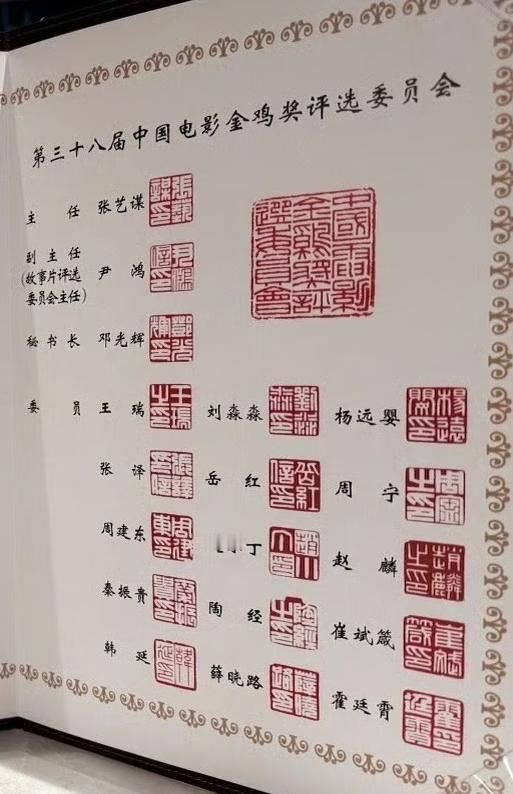 第三十八届中国电影金鸡奖评选委员会
主 任 张艺谋
副主任
(故事片评选
委员会主任)
尹 鸿
秘书长 邓光辉
委 员 王 瑞 刘淼淼 杨远婴
张 泽 岳 红 周 宁
周建东 丁 赵 麟
秦振贵 陶 经 崔斌箴
韩 延 薛晓路 霍廷霄
中國電影
金鷄獎評
選委員會